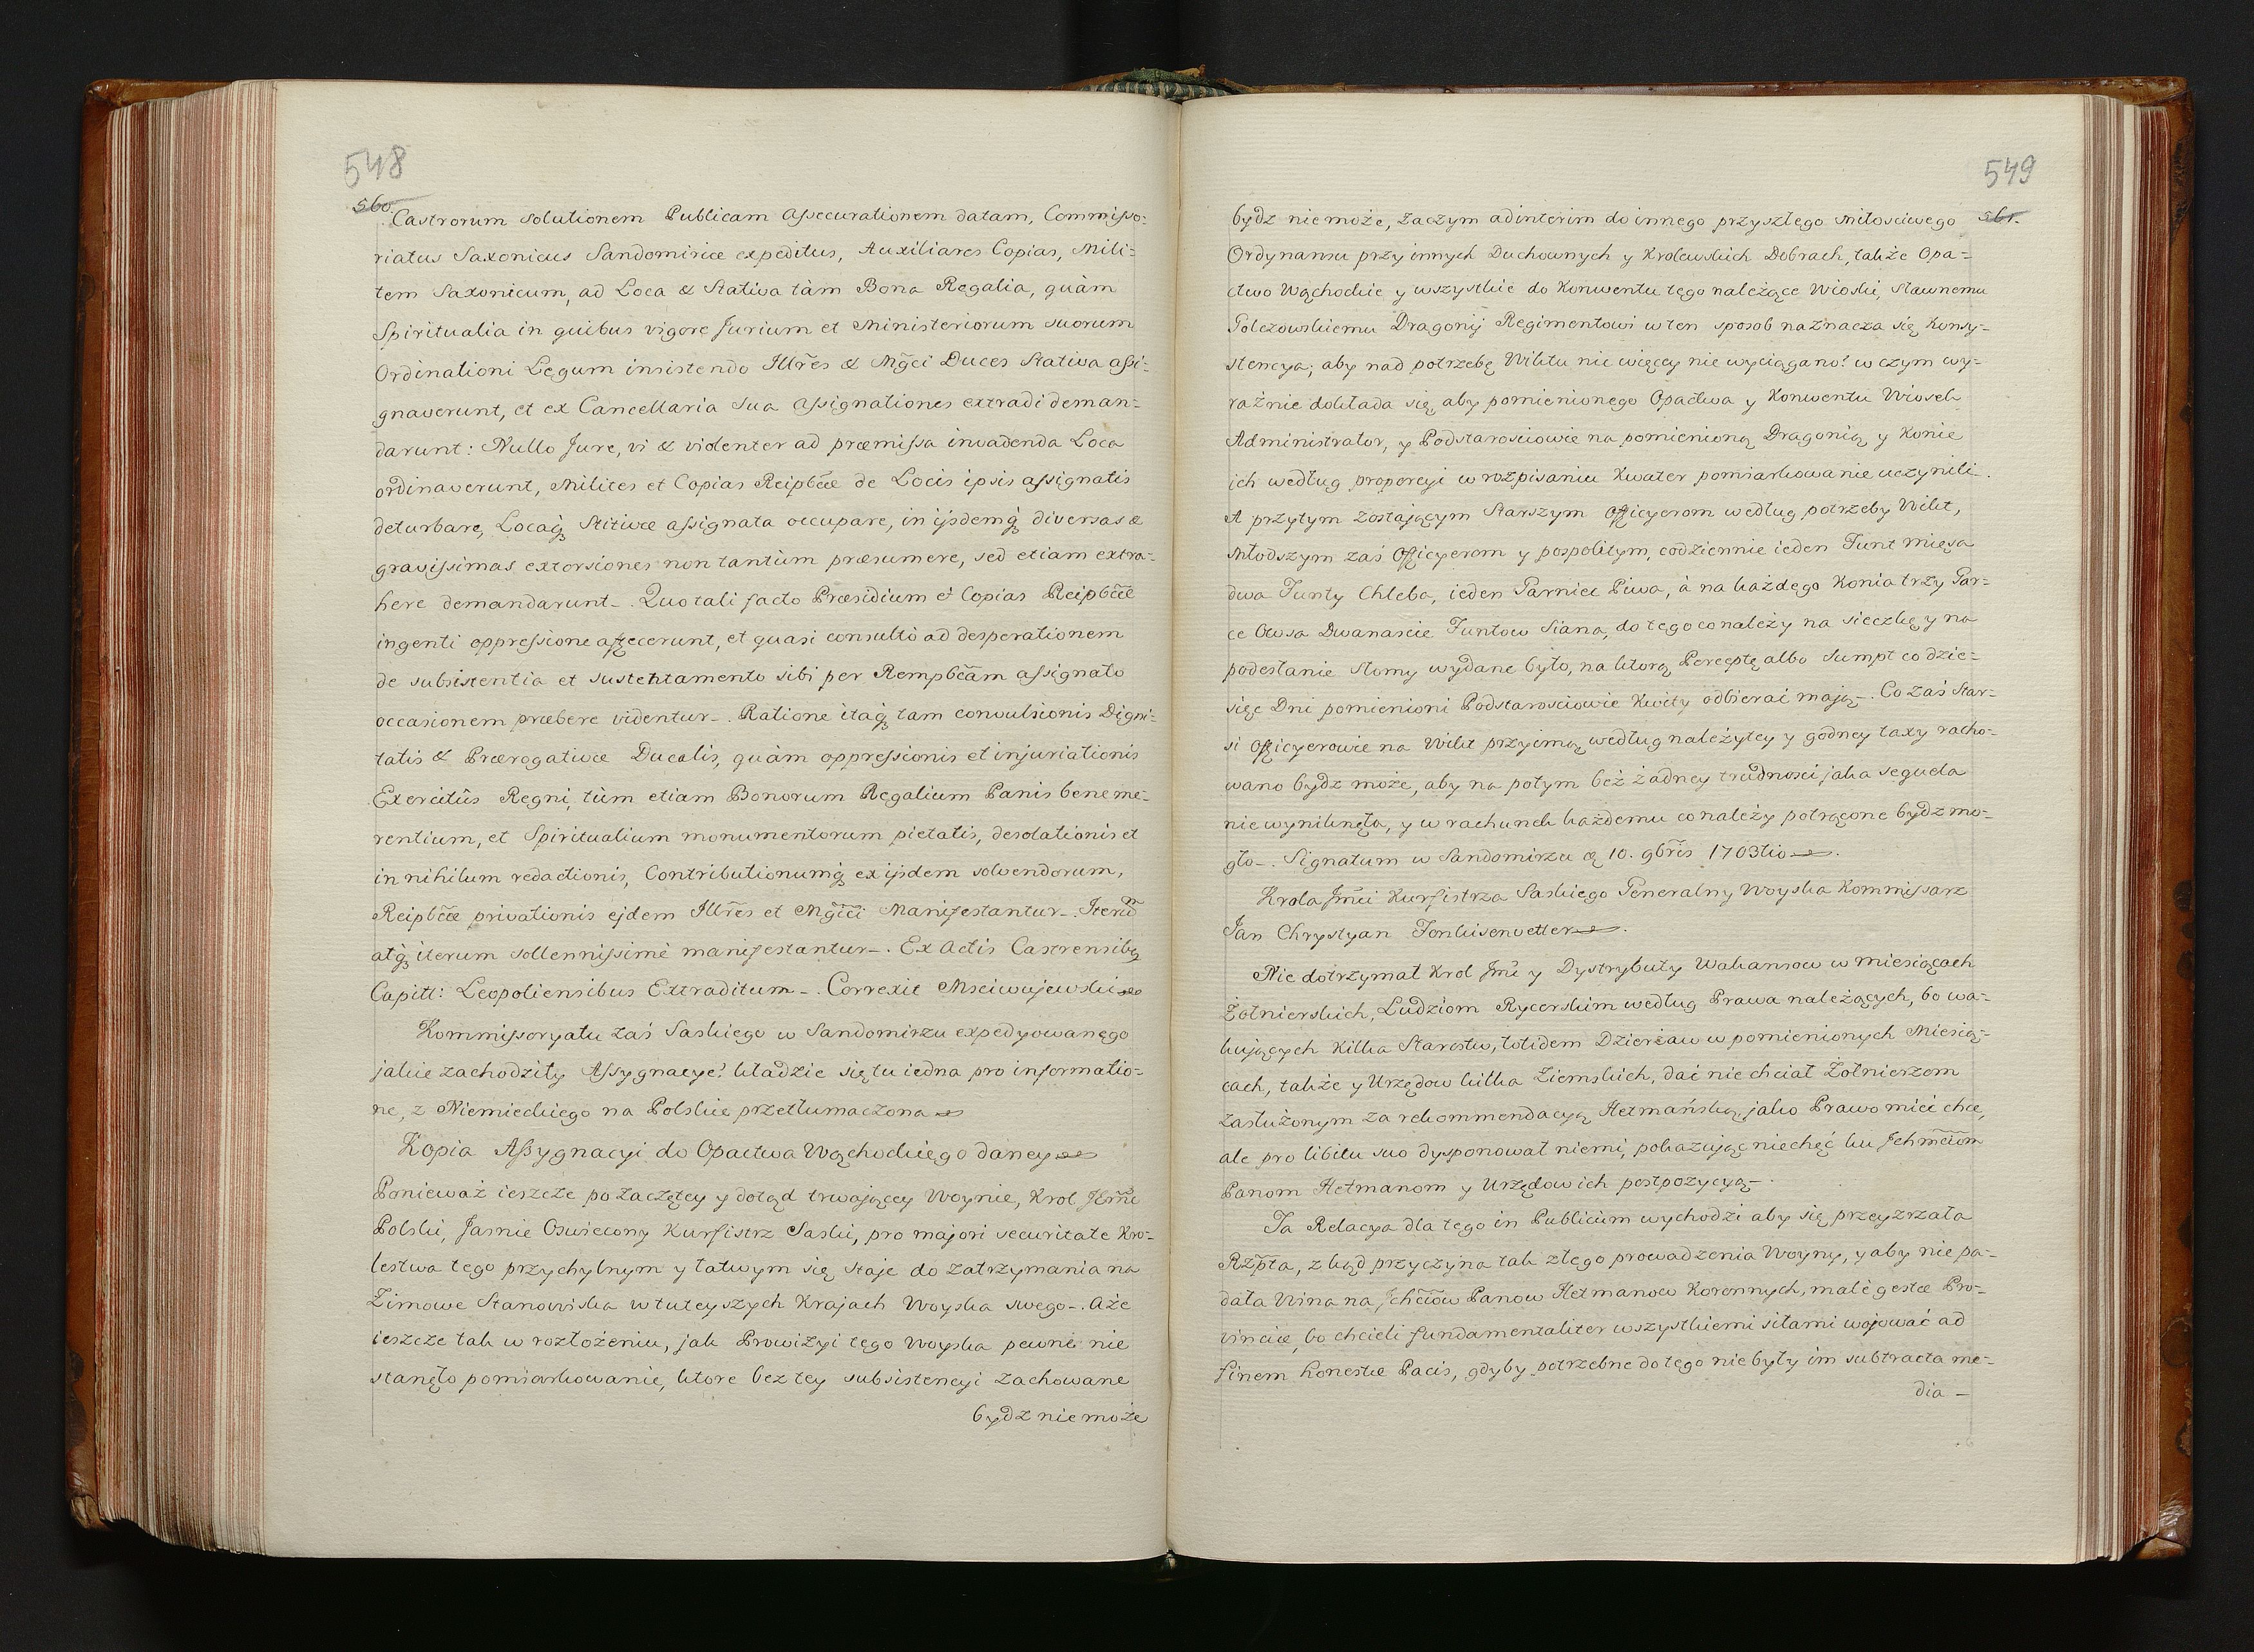 548
560.
Castrorum solutionem Publicam assecurationem datam, Commisso=
riatus Saxonicus Sandomiriæ expeditus, Auxiliares Copias, Mili=
tem Saxonicum, ad Loca & Stativa tàm Bona Regalia, quàm
Spiritualia in quibus vigore Jurium et Ministeriorum suorum
Ordinationi Legum insistendo Illr̃es & Mg̃ci Duces Stativa assi=
gnaverunt, et ex Cancellaria sua assignationes extradi deman=
darunt: Nullo Jure, vi & violenter ad præmissa invadenda Loca
ordinaverunt, Milites et Copias Reipb̃cæ de Locis ipsis assignatis
deturbare, Locaq́ Stitivæ assignata occupare, in ijsdemq́ diversas &
gravissimas extorsiones non tantùm præsumere, sed etiam extra=
here demandarunt_. Quo tali facto Præsidium et Copias Reipb̃cæ
ingenti oppressione affecerunt, et quasi consultò ad desperationem
de subsistentia et sustentamento sibi per Rempb̃cam assignato
occasionem præbere videntur_. Ratione itaq́ tam convulsionis Digni=
tatis & Prærogativæ Ducalis, quàm oppressionis et injuriationis
Exercitûs Regni, tùm etiam Bonorum Regalium Panis bene me=
rentium, et Spiritualium monumentorum pietatis, desolationis et
in nihilum redactionis, Contributionumq́ ex ijsdem solvendorum,
Reipb̃cæ privationis ejdem Illr̃es et Mg̃ci Manifestantur_. Iterũ
atq́ iterum sollennissimè manifestantur_. Ex Actis Castrensibq
Capitt: Leopoliensibus Extraditum_. Correxit Msciwujewski
Kommissoryatu zaś Saskiego w Sandomirzu expedyowanego
jakie zachodziły Assygnacye? kładzie się tu iedna pro informatio=
ne, z Niemieckiego na Polskie przetłumaczona
Kopia Assygnacyi do Opactwa Wąchockiego daney
Ponieważ ieszcze po zaczętey y dotąd trwającey Woynie, Krol JEm̃ć
Polski, Jasnie Oswiecony Kurfistrz Saski, pro majori securitate Kro=
lestwa tego przychylnym y łatwym się staje do zatrzymania na
Zimowe Stanowiska w tuteyszych Krajach Woyska swego_. Aże
ieszcze tak w rozłożeniu, jak Prowizyi tego Woyska pewne nie
stanęło pomiarkowanie, ktore bez tey subsistencyi zachowane
bydz nie może
549
561.
bydz nie może, zaczym ad interim do innego przyszłego miłosciwego
Ordynansu przy innych Duchownych y Krolewskich Dobrach, także Opa=
ctwo Wąchockie y wszystkie do Konwentu tego należące Wioski, Sławnemu
Golczowskiemu Dragonij Regimentowi w ten sposob naznacza się Konsy=
stencya; aby nad potrzebę Wiktu nic więcey nie wyciągano? w czym wy=
raźnie dokłada się, aby pomienionego Opactwa y Konwentu Wiosek
Administrator, y Podstarosciowie na pomienioną Dragonią y Konie
ich według proporcyi w rozpisaniu Kwater pomiarkowanie uczynili.
A przytym zostającym Starszym Officyerom według potrzeby Wikt,
Młodszym zaś Officyerom y pospolitym, codziennie ieden Funt mięsa
dwa Funty Chleba, ieden Garniec Piwa, à na każdego Konia trzy Gar=
ce Owsa Dwanaście Funtow Siana, do tego co należy na sieczkę y na
podesłanie Słomy wydane było, na ktorą Perceptę albo Sumpt co dzie=
sięc Dni pomienioni Podstarosciowie Kwity odbierai mają_. Co zaś Star=
si Officyerowie na Wikt przyimą według należytey y godney taxy racho=
wano bydz może, aby na potym bez żadney trudnosci jaka sequela
nie wyniknęła, y w rachunek każdemu co należy potrącone bydz mo=
gło_. Signatum w Sandomirzu ꝗ 10. 9br̃is 1703tio.
Krola Jm̃ci Kurfistrza Saskiego Generalny Woyska Kommissarz
Jan Chrystyan Fonkisenvetter.
Nie dotrzymał Krol Jm̃ć y Dystrybuty Wakansow w miesiącach
Żołnierskich, Ludziom Rycerskim według Prawa należących, bo wa=
kujących Kilka Starostw, totidem Dzierżaw w pomienionych Miesią=
cach, także y Urzędow kilka Ziemskich, dać nie chciał Żołnierzom
zasłużonym za rekommendacyą Hetmańską, jako Prawo mieć chce,
ale pro libitu suo dysponował niemi, pokazując niechęć ku Jchm̃ciom
Panom Hetmanom y Urzędow ich postpozycyą_.
Ta Relacya dla tego in Publicum wychodzi aby się przeyzrzała
Rzp̃ta, z kąd przyczyna tak złego prowadzenia Woyny, y aby nie pa=
dała Wina na Jchc̃iow Panow Hetmanow Koronnych, malè gestæ Pro=
vinciæ, bo chcieli fundamentaliter wszystkiemi siłami wojować ad
finem honestæ Pacis, gdyby potrzebne do tego nie były im subtracta me=
dia_